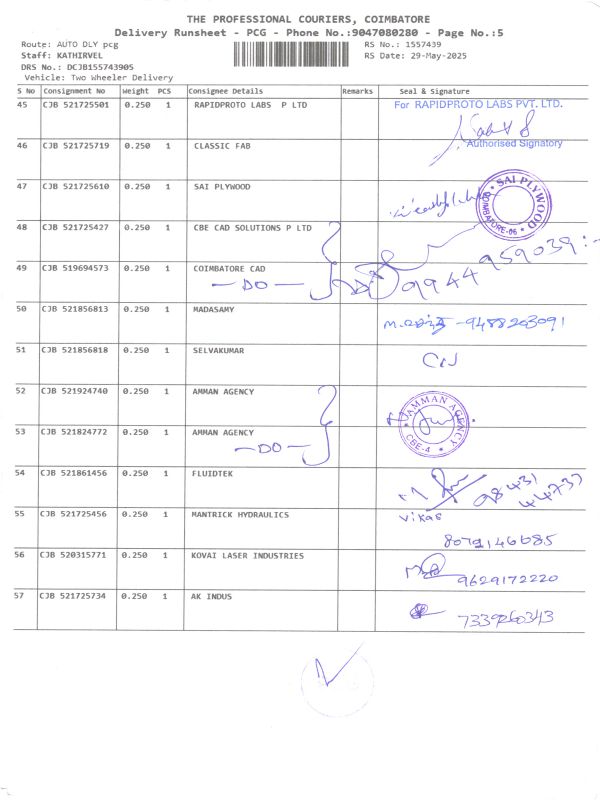 THE PROFESSIONAL COURIERS, COIMBATORE
Delivery Runsheet - PCG - Phone No.:9047080280 - Page No.:5
Route: AUTO DLY pcg RS No.: 1557439
Staff: KATHIRVEL RS Date: 29-May-2025
DRS No.: DCJB155743905
Vehicle: Two Wheeler Delivery
S No Consignment No Weight PCS Consignee Details Remarks Seal & Signature
45 CJB 521725501 0.250 1 RAPIDPROTO LABS P LTD For RAPIDPROTO LABS PVT. LTD.
Authorised Signatory
46 CJB 521725719 0.250 1 CLASSIC FAB
47 CJB 521725610 0.250 1 SAI PLYWOOD
SAI PLYWOOD
COIMBATORE-06
48 CJB 521725427 0.250 1 CBE CAD SOLUTIONS P LTD
49 CJB 519694573 0.250 1 COIMBATORE CAD
— DO — 9944 959039
50 CJB 521856813 0.250 1 MADASAMY
-9488203091
51 CJB 521856818 0.250 1 SELVAKUMAR
52 CJB 521924740 0.250 1 AMMAN AGENCY
AMMAN AGENCY
CBE-4
53 CJB 521824772 0.250 1 AMMAN AGENCY
— DO —
54 CJB 521861456 0.250 1 FLUIDTEK
98431
44737
55 CJB 521725456 0.250 1 MANTRICK HYDRAULICS Vikas
8072146685
56 CJB 520315771 0.250 1 KOVAI LASER INDUSTRIES
9629172220
57 CJB 521725734 0.250 1 AK INDUS